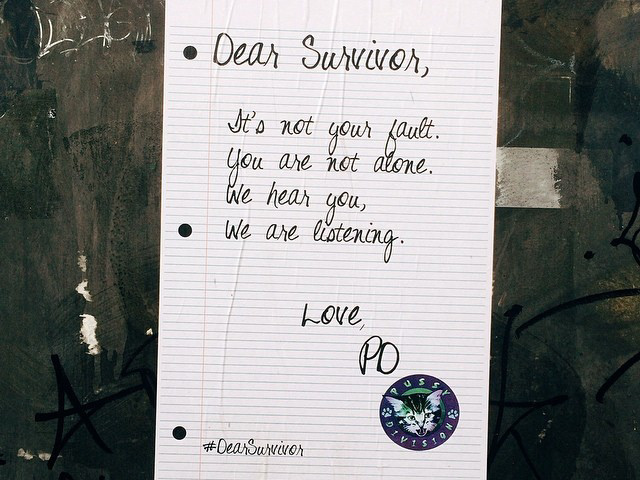 Dear Survivor,
It's not your fault.
You are not alone.
We hear you,
We are listening.
Love,
PD
PUSSY DIVISION
#DearSurvivor